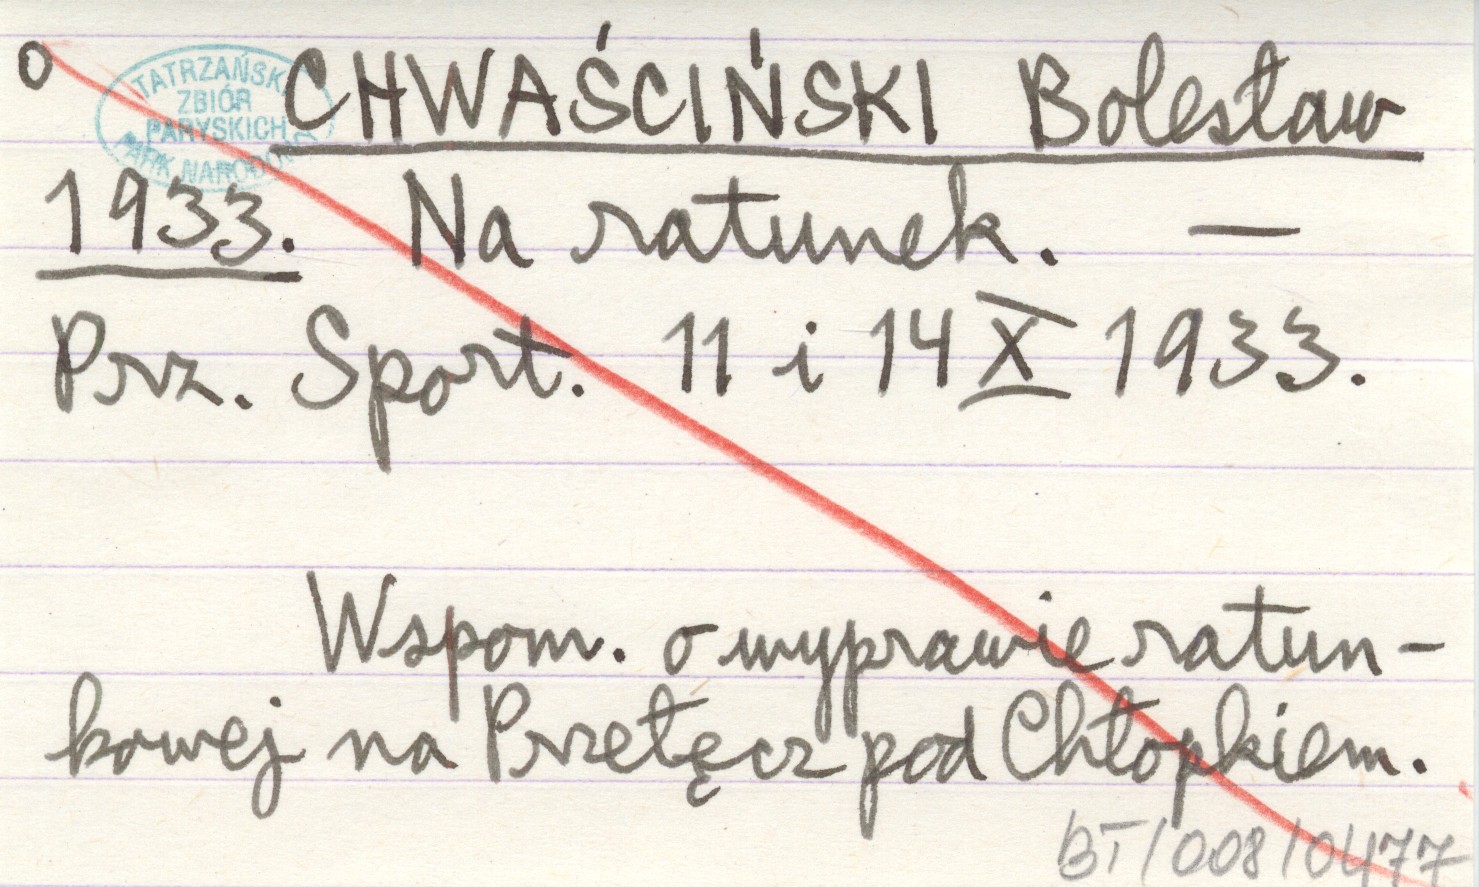 o
TATRZAŃSKI
ZBIÓR
PARYSKICH
PARK NARODOWY
CHWAŚCIŃSKI Bolesław
1933. Na ratunek. —
Prz. Sport. 11 i 14 X 1933.
Wspom. o wyprawie ratun-
kowej na Przełęcz pod Chłopkiem.
BT/008/0477